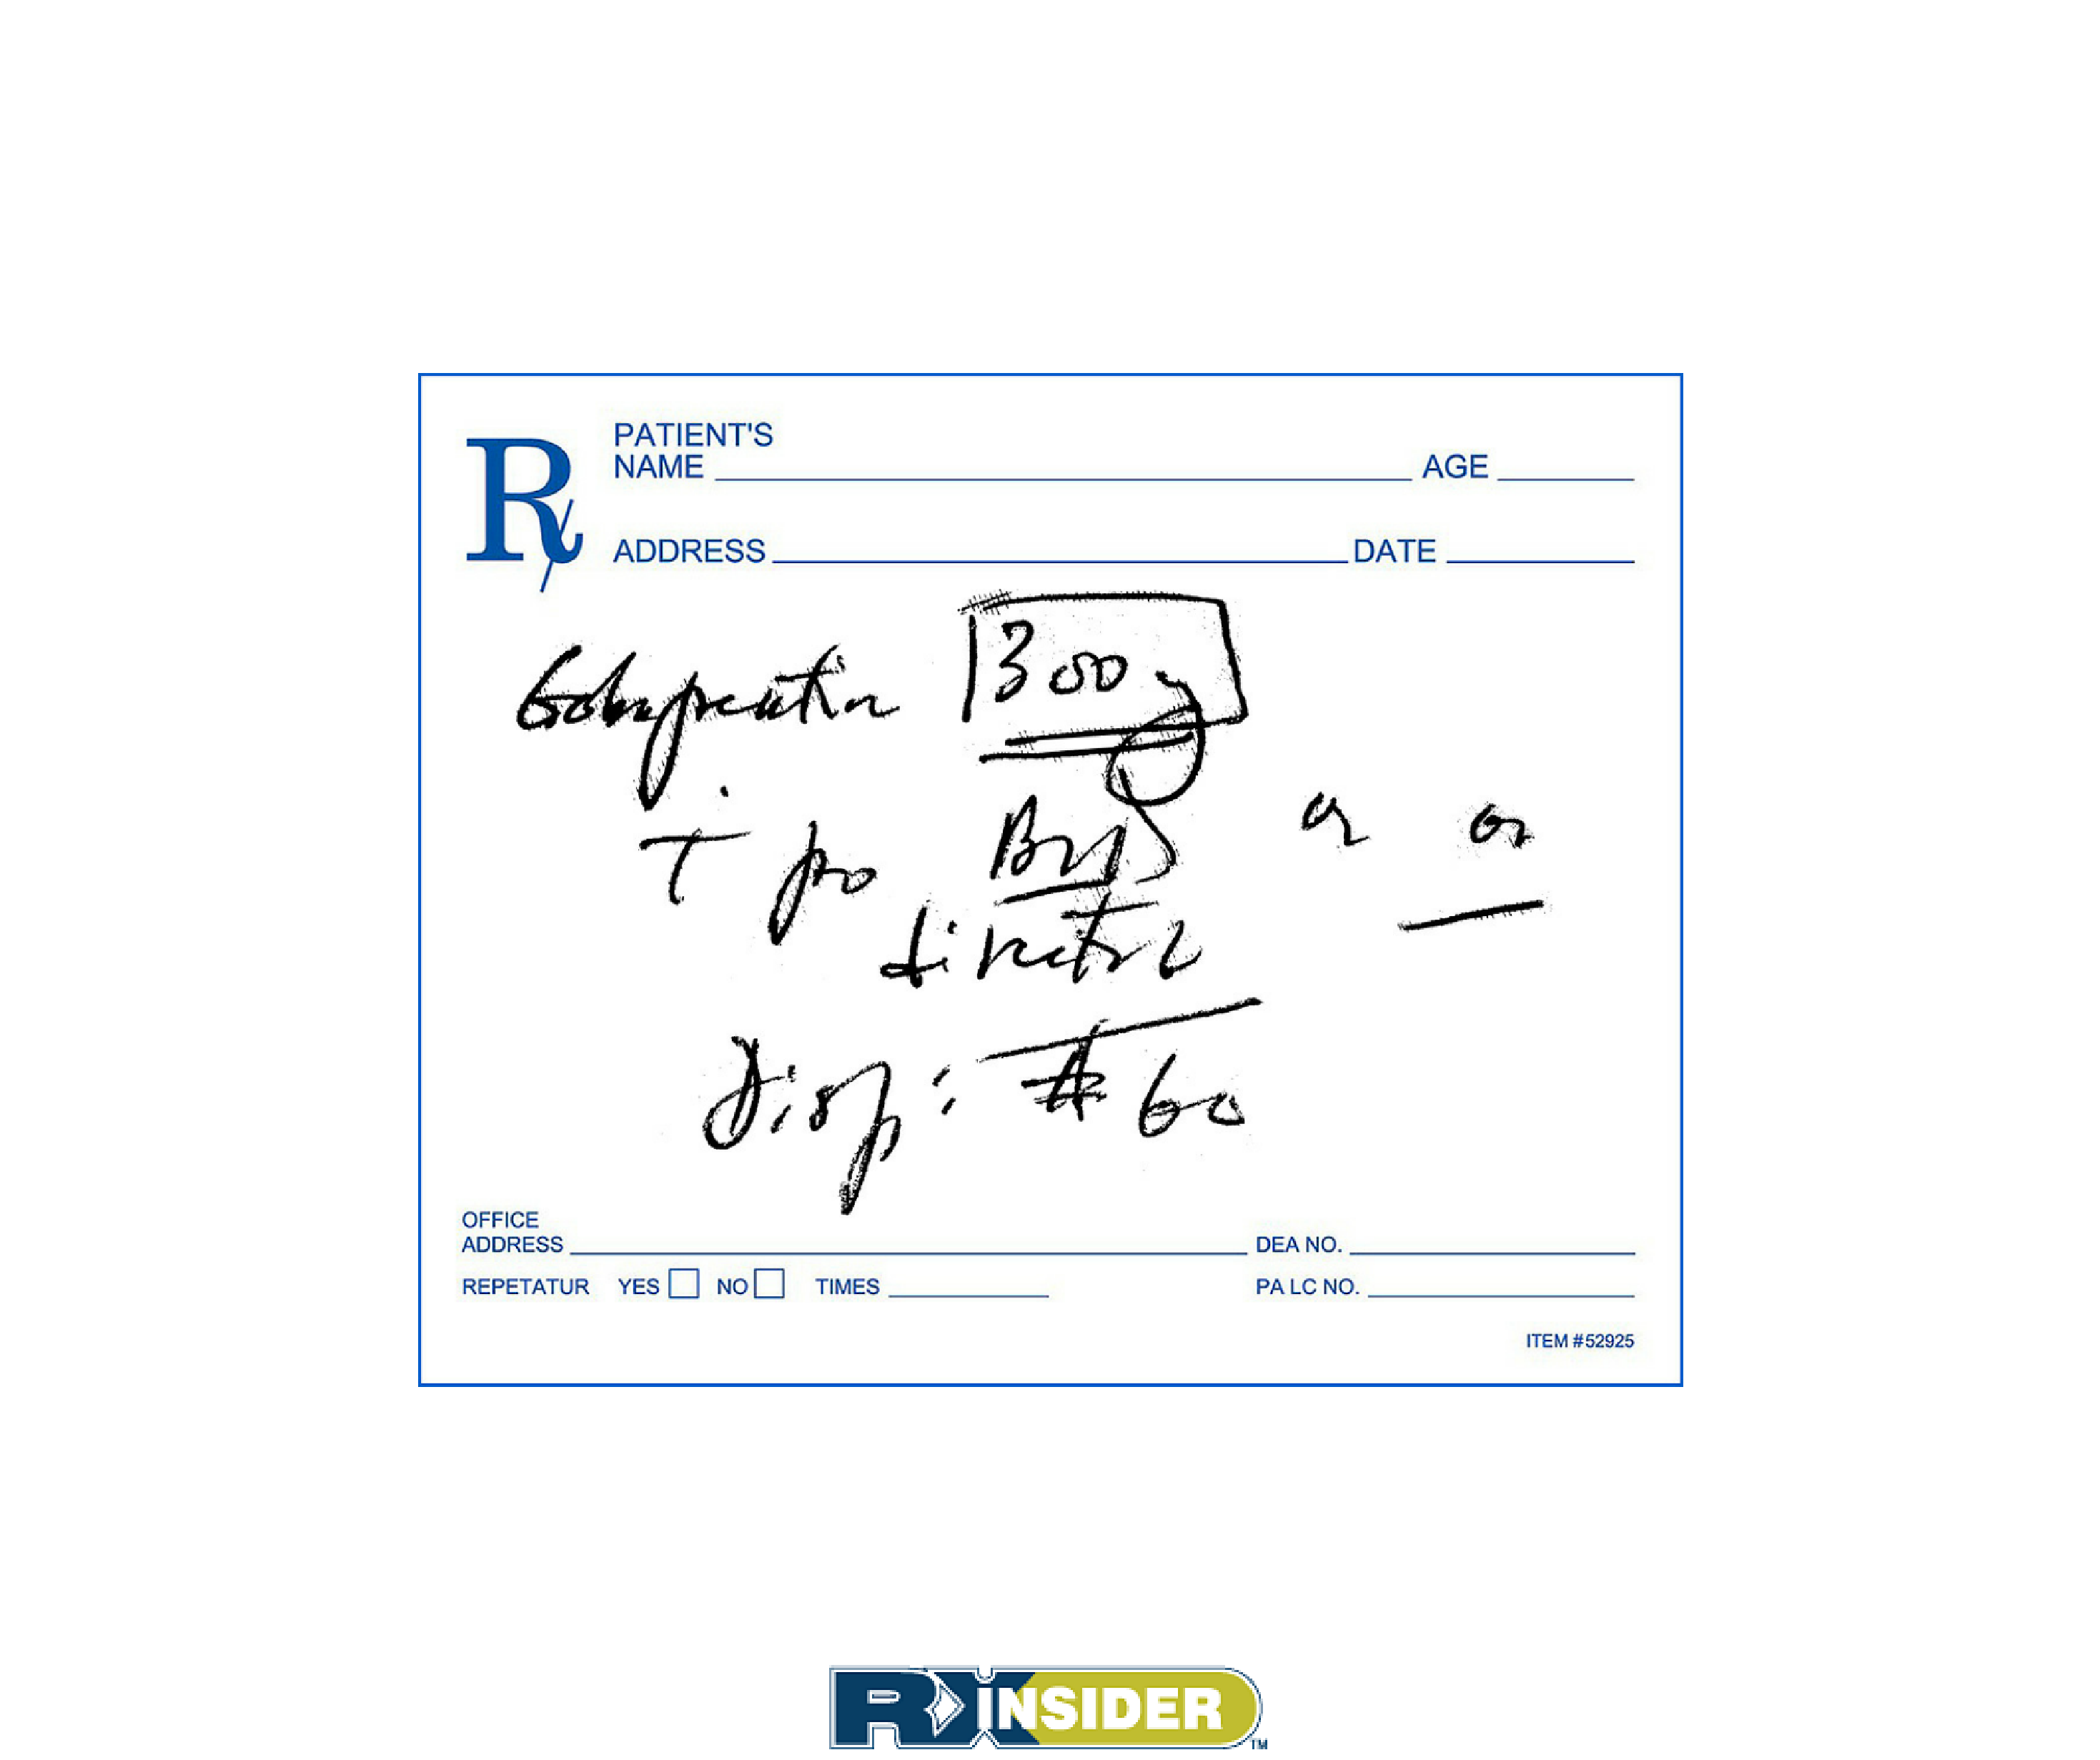 PATIENT'S
NAME AGE
ADDRESS DATE
Gabapentin 300 mg
T po BID or as
directed
Disp: #60
OFFICE
ADDRESS DEA NO.
REPETATUR YES NO TIMES PA LC NO.
ITEM #52925
RXINSIDER TM